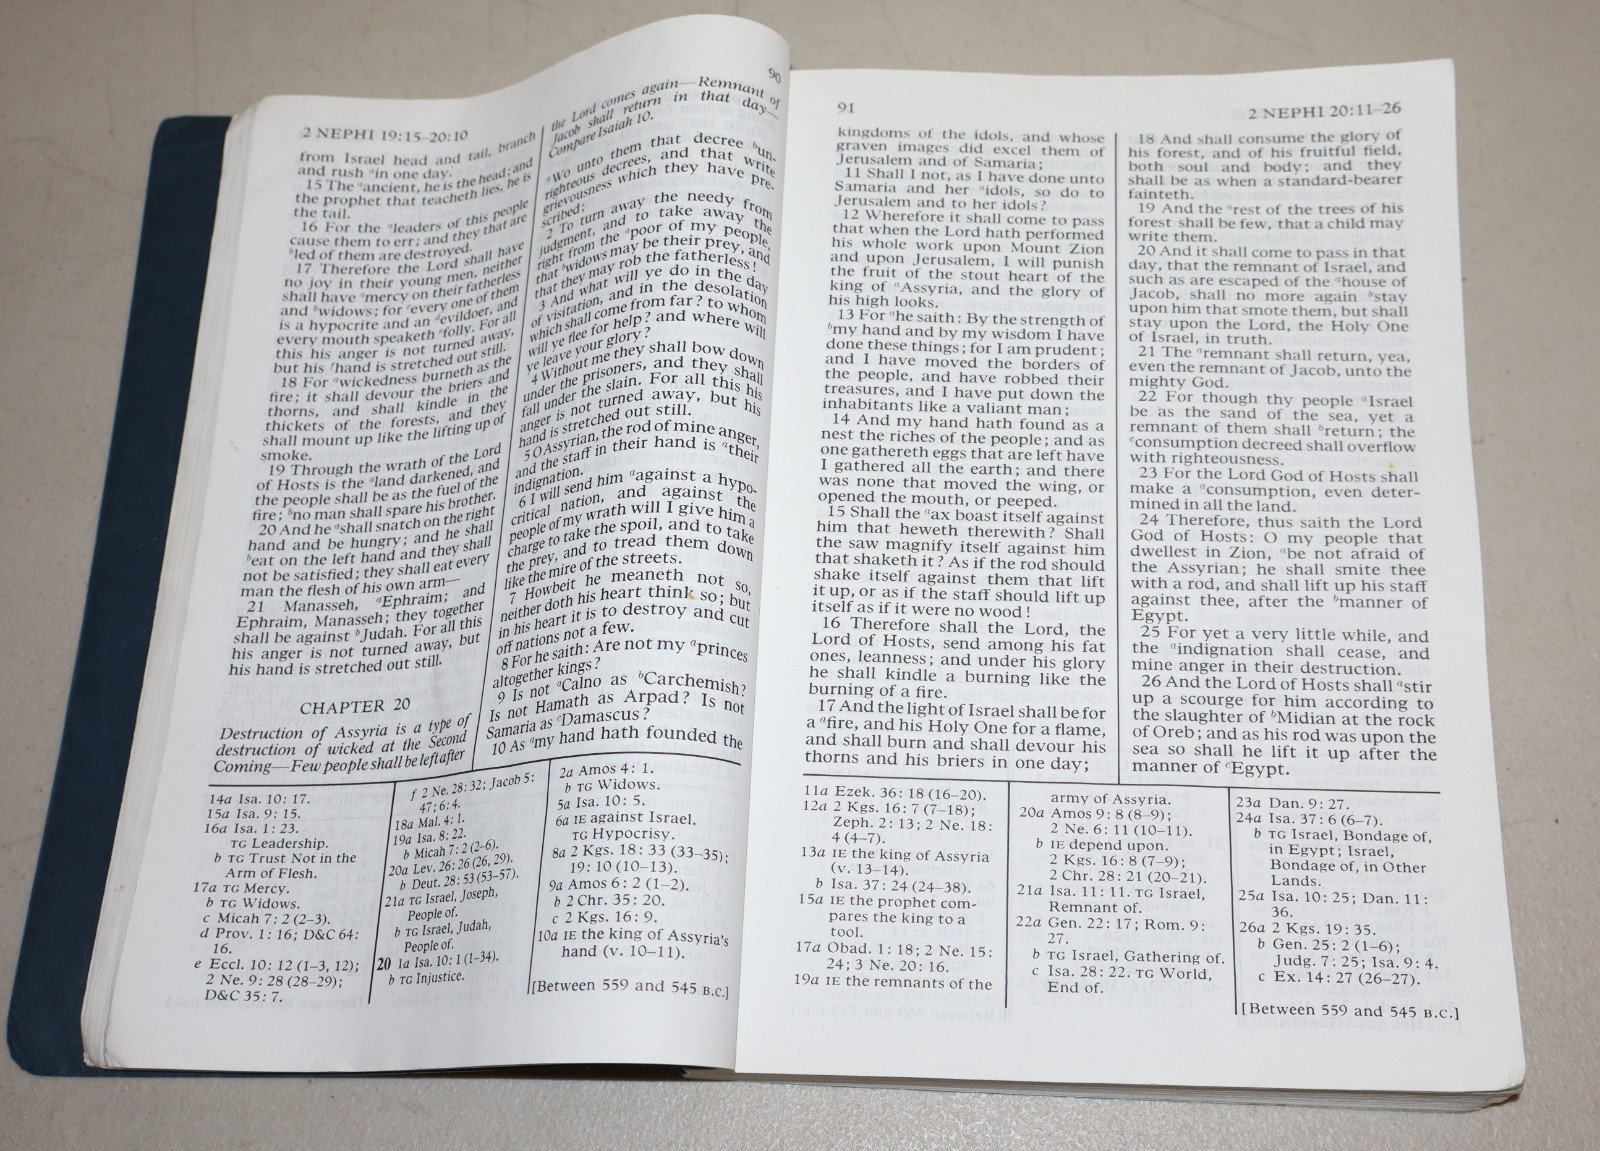 2 NEPHI 19:15–20:10
90
from Israel head and tail, branch
and rush ᵃin one day.
15 The ᵃancient, he is the head; and
the prophet that teacheth lies, he is
the tail.
16 For the ᵃleaders of this people
cause them to err; and they that are
ᵇled of them are destroyed.
17 Therefore the Lord shall have
no joy in their young men, neither
shall have ᵃmercy on their fatherless
and ᵇwidows; for ᶜevery one of them
is a hypocrite and an ᵈevildoer, and
every mouth speaketh ᵉfolly. For all
this his anger is not turned away,
but his ᶠhand is stretched out still.
18 For ᵃwickedness burneth as the
fire; it shall devour the briers and
thorns, and shall kindle in the
thickets of the forests, and they
shall mount up like the lifting up of
smoke.
19 Through the wrath of the Lord
of Hosts is the ᵃland darkened, and
the people shall be as the fuel of the
fire; ᵇno man shall spare his brother.
20 And he ᵃshall snatch on the right
hand and be hungry; and he shall
ᵇeat on the left hand and they shall
not be satisfied; they shall eat every
man the flesh of his own arm—
21 Manasseh, ᵃEphraim; and
Ephraim, Manasseh; they together
shall be against ᵇJudah. For all this
his anger is not turned away, but
his hand is stretched out still.
CHAPTER 20
Destruction of Assyria is a type of
destruction of wicked at the Second
Coming—Few people shall be left after
the Lord comes again—Remnant of
Jacob shall return in that day—
Compare Isaiah 10.
ᵃWo unto them that decree ᵇun-
righteous decrees, and that write
grievousness which they have pre-
scribed;
2 To turn away the needy from
judgment, and to take away the
right from the ᵃpoor of my people,
that ᵇwidows may be their prey, and
that they may rob the fatherless!
3 And what will ye do in the day
of visitation, and in the desolation
which shall come from far? to whom
will ye flee for help? and where will
ye leave your glory?
4 Without me they shall bow down
under the prisoners, and they shall
fall under the slain. For all this his
anger is not turned away, but his
hand is stretched out still.
5 O Assyrian, the rod of mine anger,
and the staff in their hand is ᵃtheir
indignation.
6 I will send him ᵃagainst a hypo-
critical nation, and against the
people of my wrath will I give him a
charge to take the spoil, and to take
the prey, and to tread them down
like the mire of the streets.
7 Howbeit he meaneth not so,
neither doth his heart think so; but
in his heart it is to destroy and cut
off nations not a few.
8 For he saith: Are not my ᵃprinces
altogether kings?
9 Is not ᵃCalno as ᵇCarchemish?
Is not Hamath as Arpad? Is not
Samaria as ᶜDamascus?
10 As ᵃmy hand hath founded the
14a Isa. 10: 17.
15a Isa. 9: 15.
16a Isa. 1: 23.
TG Leadership.
b TG Trust Not in the
Arm of Flesh.
17a TG Mercy.
b TG Widows.
c Micah 7: 2 (2–3).
d Prov. 1: 16; D&C 64:
16.
e Eccl. 10: 12 (1–3, 12);
2 Ne. 9: 28 (28–29);
D&C 35: 7.
f 2 Ne. 28: 32; Jacob 5:
47; 6: 4.
18a Mal. 4: 1.
19a Isa. 8: 22.
b Micah 7: 2 (2–6).
20a Lev. 26: 26 (26, 29).
b Deut. 28: 53 (53–57).
21a TG Israel, Joseph,
People of.
b TG Israel, Judah,
People of.
20 1a Isa. 10: 1 (1–34).
b TG Injustice.
2a Amos 4: 1.
b TG Widows.
5a Isa. 10: 5.
6a IE against Israel.
TG Hypocrisy.
8a 2 Kgs. 18: 33 (33–35);
19: 10 (10–13).
9a Amos 6: 2 (1–2).
b 2 Chr. 35: 20.
c 2 Kgs. 16: 9.
10a IE the king of Assyria's
hand (v. 10–11).
[Between 559 and 545 B.C.]
91
2 NEPHI 20:11–26
kingdoms of the idols, and whose
graven images did excel them of
Jerusalem and of Samaria;
11 Shall I not, as I have done unto
Samaria and her ᵃidols, so do to
Jerusalem and to her idols?
12 Wherefore it shall come to pass
that when the Lord hath performed
his whole work upon Mount Zion
and upon Jerusalem, I will punish
the fruit of the stout heart of the
king of ᵃAssyria, and the glory of
his high looks.
13 For ᵃhe saith: By the strength of
ᵇmy hand and by my wisdom I have
done these things; for I am prudent;
and I have moved the borders of
the people, and have robbed their
treasures, and I have put down the
inhabitants like a valiant man;
14 And my hand hath found as a
nest the riches of the people; and as
one gathereth eggs that are left have
I gathered all the earth; and there
was none that moved the wing, or
opened the mouth, or peeped.
15 Shall the ᵃax boast itself against
him that heweth therewith? Shall
the saw magnify itself against him
that shaketh it? As if the rod should
shake itself against them that lift
it up, or as if the staff should lift up
itself as if it were no wood!
16 Therefore shall the Lord, the
Lord of Hosts, send among his fat
ones, leanness; and under his glory
he shall kindle a burning like the
burning of a fire.
17 And the light of Israel shall be for
a ᵃfire, and his Holy One for a flame,
and shall burn and shall devour his
thorns and his briers in one day;
18 And shall consume the glory of
his forest, and of his fruitful field,
both soul and body; and they
shall be as when a standard-bearer
fainteth.
19 And the ᵃrest of the trees of his
forest shall be few, that a child may
write them.
20 And it shall come to pass in that
day, that the remnant of Israel, and
such as are escaped of the ᵃhouse of
Jacob, shall no more again ᵇstay
upon him that smote them, but shall
stay upon the Lord, the Holy One
of Israel, in truth.
21 The ᵃremnant shall return, yea,
even the remnant of Jacob, unto the
mighty God.
22 For though thy people ᵃIsrael
be as the sand of the sea, yet a
remnant of them shall ᵇreturn; the
ᶜconsumption decreed shall overflow
with righteousness.
23 For the Lord God of Hosts shall
make a ᵃconsumption, even deter-
mined in all the land.
24 Therefore, thus saith the Lord
God of Hosts: O my people that
dwellest in Zion, ᵃbe not afraid of
the Assyrian; he shall smite thee
with a rod, and shall lift up his staff
against thee, after the ᵇmanner of
Egypt.
25 For yet a very little while, and
the ᵃindignation shall cease, and
mine anger in their destruction.
26 And the Lord of Hosts shall ᵃstir
up a scourge for him according to
the slaughter of ᵇMidian at the rock
of Oreb; and as his rod was upon the
sea so shall he lift it up after the
manner of ᶜEgypt.
11a Ezek. 36: 18 (16–20).
12a 2 Kgs. 16: 7 (7–18);
Zeph. 2: 13; 2 Ne. 18:
4 (4–7).
13a IE the king of Assyria
(v. 13–14).
b Isa. 37: 24 (24–38).
15a IE the prophet com-
pares the king to a
tool.
17a Obad. 1: 18; 2 Ne. 15:
24; 3 Ne. 20: 16.
19a IE the remnants of the
army of Assyria.
20a Amos 9: 8 (8–9);
2 Ne. 6: 11 (10–11).
b IE depend upon.
2 Kgs. 16: 8 (7–9);
2 Chr. 28: 21 (20–21).
21a Isa. 11: 11. TG Israel,
Remnant of.
22a Gen. 22: 17; Rom. 9:
27.
b TG Israel, Gathering of.
c Isa. 28: 22. TG World,
End of.
23a Dan. 9: 27.
24a Isa. 37: 6 (6–7).
b TG Israel, Bondage of,
in Egypt; Israel,
Bondage of, in Other
Lands.
25a Isa. 10: 25; Dan. 11:
36.
26a 2 Kgs. 19: 35.
b Gen. 25: 2 (1–6);
Judg. 7: 25; Isa. 9: 4.
c Ex. 14: 27 (26–27).
[Between 559 and 545 B.C.]